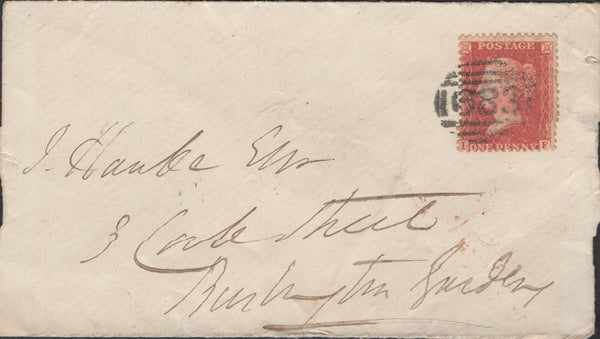 POSTAGE
I ONE PENNY F
J. Hawke Esqr
3 Cork Street
Burlington Gardens